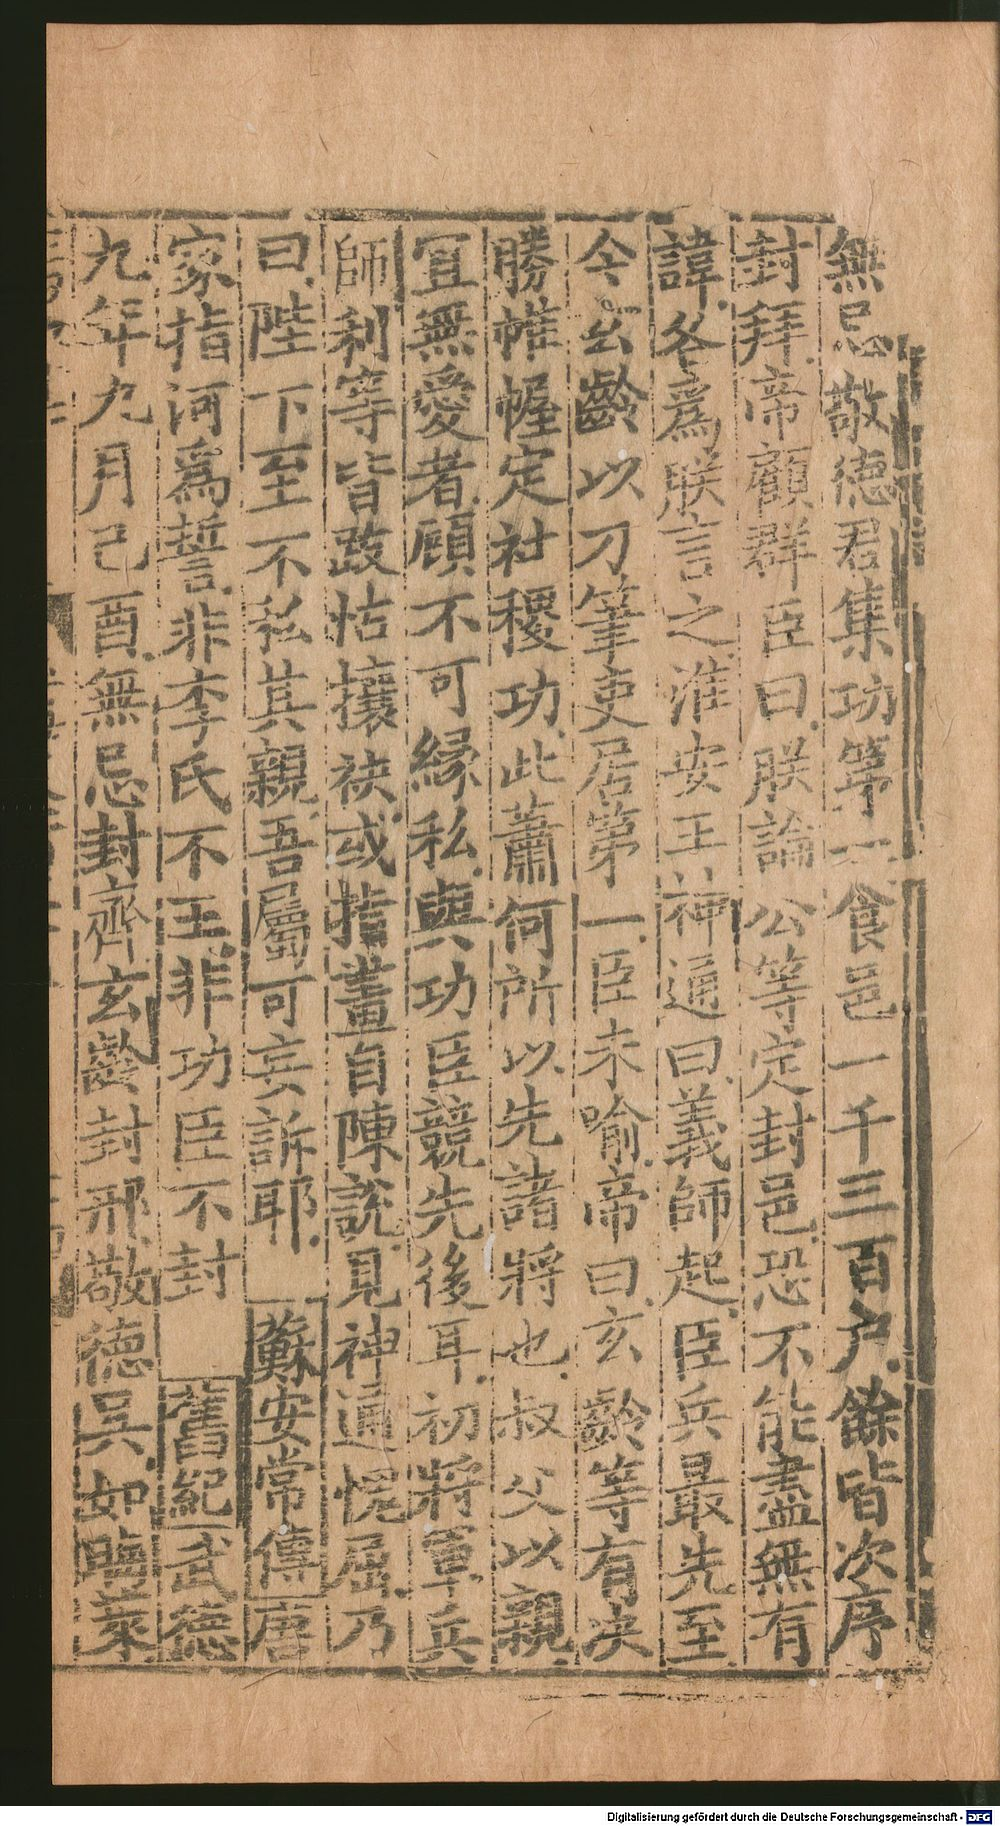 無忌敬德君集功第一食邑一千三百户餘皆次序
封拜帝顧群臣曰朕論公等定封邑恐不能盡無有
諱各爲朕言之淮安王神通曰義師起臣兵最先至
今玄齡以刀筆吏居第一臣未喻帝曰玄齡等有决
勝帷幄定社稷功此蕭何所以先諸將也叔父以親
宜無愛者顧不可緣私與功臣競先後耳初將軍丘
師利等皆㪅怙攘袂或指畫自陳說見神通愧屈乃
曰陛下至不私其親吾屬可妄訴耶 蘇安常傳唐
家指河爲誓非李氏不王非功臣不封 舊紀武德
九年九月己酉無忌封齊玄齡封邢敬德吳如晦萊
Digitalisierung gefördert durch die Deutsche Forschungsgemeinschaft - DFG